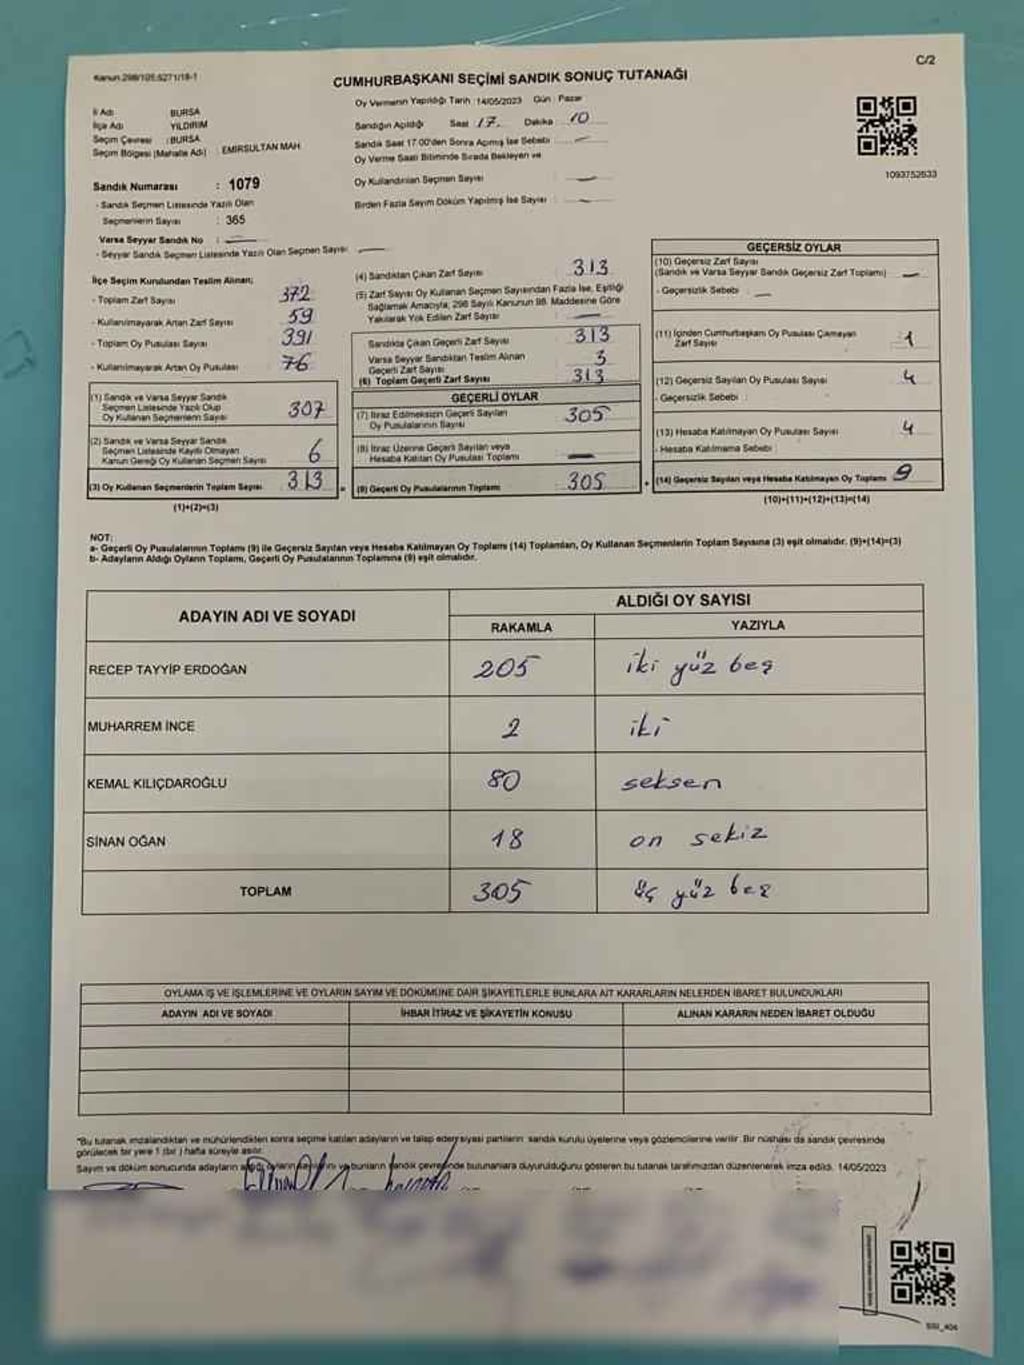 Kanun:298/105,5271/18-1
C/2
CUMHURBAŞKANI SEÇİMİ SANDIK SONUÇ TUTANAĞI
İl Adı BURSA
İlçe Adı YILDIRIM
Seçim Çevresi : BURSA
Seçim Bölgesi (Mahalle Adı) : EMİRSULTAN MAH
Sandık Numarası : 1079
- Sandık Seçmen Listesinde Yazılı Olan
Seçmenlerin Sayısı : 365
Varsa Seyyar Sandık No : —
- Seyyar Sandık Seçmen Listesinde Yazılı Olan Seçmen Sayısı : —
Oy Vermenin Yapıldığı Tarih :14/05/2023 Gün : Pazar
Sandığın Açıldığı Saat : 17. Dakika : 10
Sandık Saat 17:00'den Sonra Açımış İse Sebebi : —
Oy Verme Saati Bitiminde Sırada Bekleyen ve
Oy Kullandırılan Seçmen Sayısı : —
Birden Fazla Sayım Döküm Yapılmış İse Sayısı : —
1093752633
İlçe Seçim Kurulundan Teslim Alınan;
- Toplam Zarf Sayısı 372
- Kullanılmayarak Artan Zarf Sayısı 59
- Toplam Oy Pusulası Sayısı 391
- Kullanılmayarak Artan Oy Pusulası 76
(1) Sandık ve Varsa Seyyar Sandık
Seçmen Listesinde Yazılı Olup
Oy Kullanan Seçmenlerin Sayısı 307
(2) Sandık ve Varsa Seyyar Sandık
Seçmen Listesinde Kayıtlı Olmayan
Kanun Gereği Oy Kullanan Seçmen Sayısı 6
(3) Oy Kullanan Seçmenlerin Toplam Sayısı 313
(1)+(2)=(3)
(4) Sandıktan Çıkan Zarf Sayısı 313
(5) Zarf Sayısı Oy Kullanan Seçmen Sayısından Fazla İse, Eşitliği
Sağlamak Amacıyla, 298 Sayılı Kanunun 98. Maddesine Göre
Yakılarak Yok Edilen Zarf Sayısı —
Sandıkta Çıkan Geçerli Zarf Sayısı 313
Varsa Seyyar Sandıktan Teslim Alınan
Geçerli Zarf Sayısı 3
(6) Toplam Geçerli Zarf Sayısı 313
GEÇERLİ OYLAR
(7) İtiraz Edilmeksizin Geçerli Sayılan
Oy Pusulalarının Sayısı 305
(8) İtiraz Üzerine Geçerli Sayılan veya
Hesaba Katılan Oy Pusulası Toplamı —
(9) Geçerli Oy Pusulalarının Toplamı 305
GEÇERSİZ OYLAR
(10) Geçersiz Zarf Sayısı
(Sandık ve Varsa Seyyar Sandık Geçersiz Zarf Toplamı) —
- Geçersizlik Sebebi : —
(11) İçinden Cumhurbaşkanı Oy Pusulası Çıkmayan
Zarf Sayısı 1
(12) Geçersiz Sayılan Oy Pusulası Sayısı 4
- Geçersizlik Sebebi :
(13) Hesaba Katılmayan Oy Pusulası Sayısı 4
- Hesaba Katılmama Sebebi :
(14) Geçersiz Sayılan veya Hesaba Katılmayan Oy Toplamı 9
(10)+(11)+(12)+(13)=(14)
NOT:
a- Geçerli Oy Pusulalarının Toplamı (9) ile Geçersiz Sayılan veya Hesaba Katılmayan Oy Toplamı (14) Toplamları, Oy Kullanan Seçmenlerin Toplam Sayısına (3) eşit olmalıdır. (9)+(14)=(3)
b- Adayların Aldığı Oyların Toplamı, Geçerli Oy Pusulalarının Toplamına (9) eşit olmalıdır.
ADAYIN ADI VE SOYADI
ALDIĞI OY SAYISI
RAKAMLA YAZIYLA
RECEP TAYYİP ERDOĞAN 205 iki yüz beş
MUHARREM İNCE 2 iki
KEMAL KILIÇDAROĞLU 80 seksen
SİNAN OĞAN 18 on sekiz
TOPLAM 305 üç yüz beş
OYLAMA İŞ VE İŞLEMLERİNE VE OYLARIN SAYIM VE DÖKÜMÜNE DAİR ŞİKAYETLERLE BUNLARA AİT KARARLARIN NELERDEN İBARET BULUNDUKLARI
ADAYIN ADI VE SOYADI İHBAR İTİRAZ VE ŞİKAYETİN KONUSU ALINAN KARARIN NEDEN İBARET OLDUĞU
*Bu tutanak imzalandıktan ve mühürlendikten sonra seçime katılan adayların ve talep eden siyasi partilerin sandık kurulu üyelerine veya gözlemcilerine verilir. Bir nüshası da sandık çevresinde
görülecek bir yere 1 (bir ) hafta süreyle asılır.
Sayım ve döküm sonucunda adayların aldığı oyların sayılarını ve bunların sandık çevresinde bulunanlara duyurulduğunu gösteren bu tutanak tarafımızdan düzenlenerek imza edildi. 14/05/2023
SSI_404